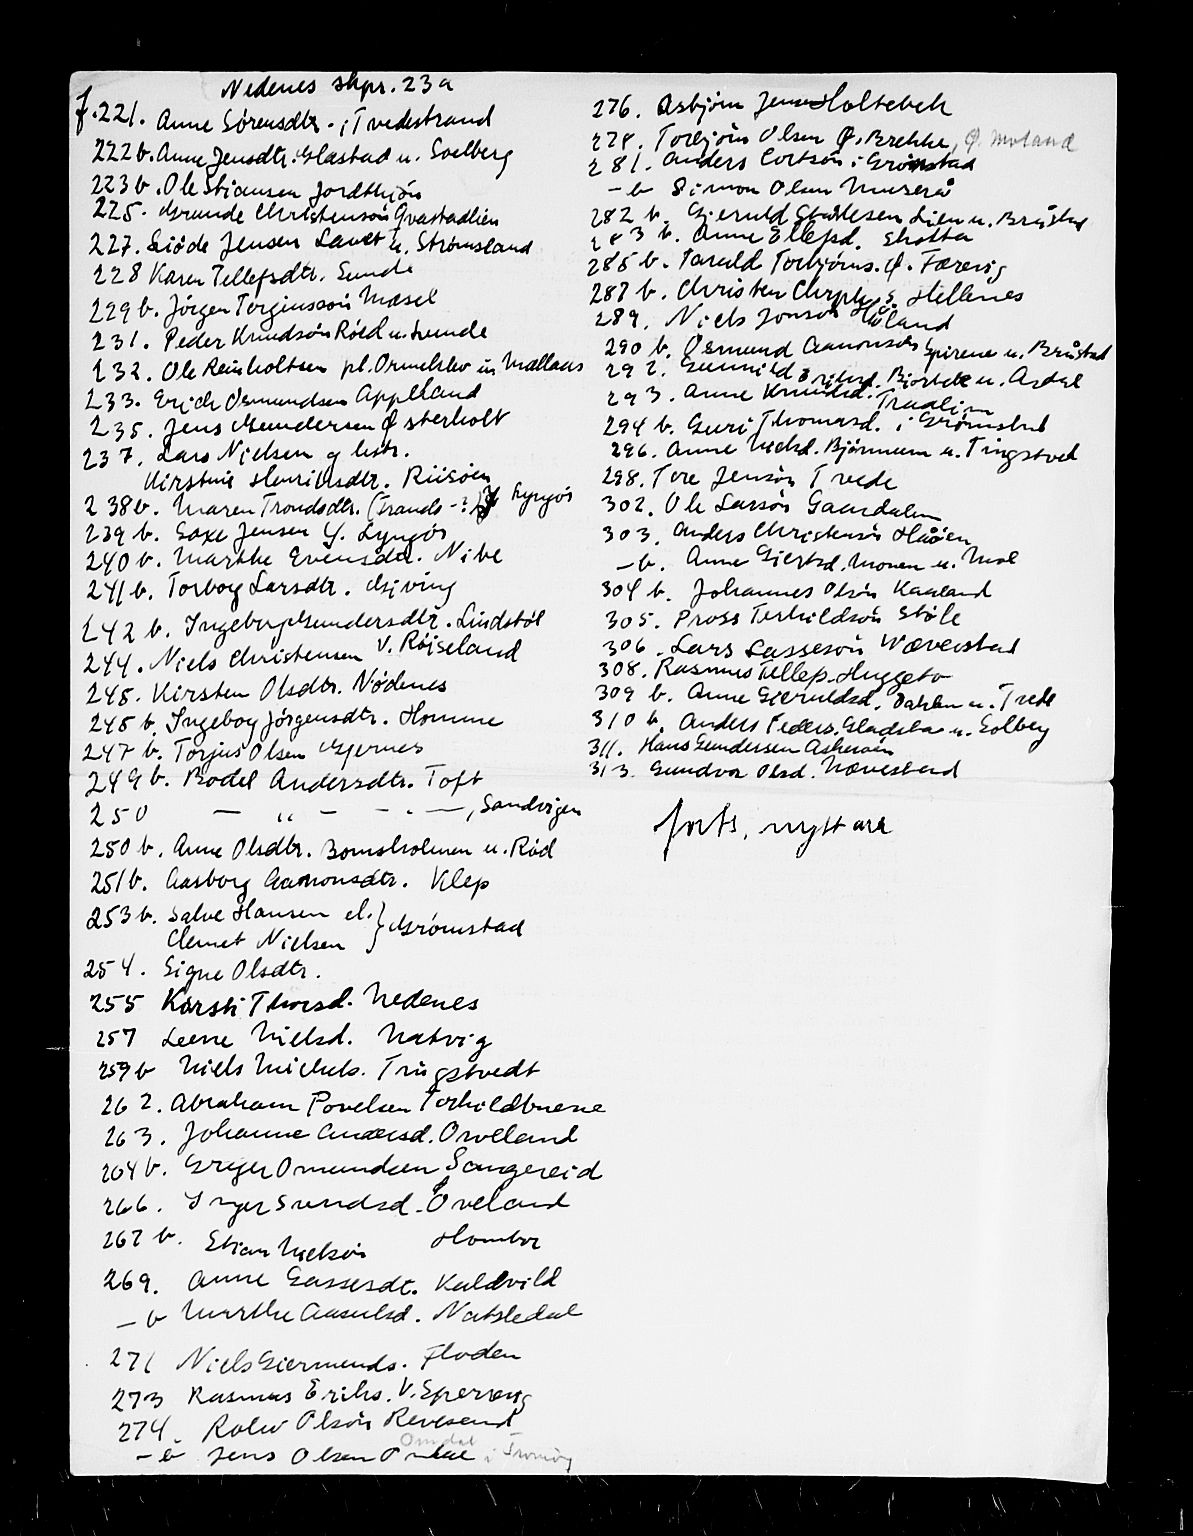 Nedenes skpr. 23a
f. 221. Anne Sørensdtr. i Tvedestrand
222b. Anne Jensdtr. Glastad u. Soelberg
223b. Ole Stiansen Jordtkjøn
225. Grunde Christensøn Gvastadlien
227. Siøde Jensen Lauet u. Strømsland
228 Karen Tellefsdtr. Sunde
229b. Jörgen Torginssøn Mæsel
231. Peder Knudsøn Röed u. Lunde
232. Ole Reinholtsen pl. Ormelslev in Mallaas
233. Erich Osmundsen Applland
235. Jens Gundersen Østerholt
237. Lars Nielsen og hstr.
Kirstine Henrichsdtr. Riisöen
238b. Maren Trondsdtr. (Frands-?) Lyngös
239b. Saxe Jensen Y. Lyngör
240b. Marthe Evensdtr. Nibe
241b. Torborg Larsdtr. Gjeving
242b. Ingeborg Gundersdtr. Lindstöl
244. Niels Christensen V. Röiseland
245. Kirsten Olsdtr. Nödenes
245b. Ingebog Jörgensdtr. Homme
247b. Torjus Olsen Gjernes
249b. Bodel Andersdtr. Toft
250 — " — - . —, Sandvigen
250b. Anne Olsdtr. Bomsholmen u. Röd
251b. Aasborg Aamonsdtr. Klep
253b. Salve Hansen el. } Grömstad
Clemet Nielsen
254. Signe Olsdtr.
255 Kirsti Thorsd. Nedenes
257 Leene Nielsd. Natvig
259b Niels Michels. Tingstvedt
262. Abraham Povelsen Torkildbuene
263. Johanne Andersd. Oveland
264b. Greger Omundsen Sangereid
266. Inger Svendsd. Öveland
267b. Stian Nielsön Hombor
269. Anne Gassesdtr. Kaldvild
— b Marthe Aasulsd. Natskedal
271 Niels Giermunds. Floden
273 Rasmus Eriks. V. Sperreng
274. Rolev Olsön Revesand
— b Jens Olsen Omdal i Tromöy
276. Asbjörn Jensen Holtebek
278. Torbjörn Olsen Ø. Brekke, Ø. Moland
281. Anders Cortsön i Grömstad
— b Simon Olsen Mureraa
282b. Gjeruld Ståleson Lien u. Bråstad
283b. Anne Ellefsd. Skotta
285b. Taruld Torbjörns. Ø. Færevig
287b. Christen Chrphs. Hellenes
289. Niels Jonsön Håland
290b. Osmund Aanonsön Spirene u. Bråstad
292. Gunnild Eriksd. Biorbek u. Asdal
293. Anne Knudsd. Traalim
294b. Guri Thomasd. i Grömstad
296. Anne Nielsd. Björnum u. Tingstved
298. Tore Jensön Trede
302. Ole Larsön Gaardalen
303. Anders Christensön Hååien
— b. Anne Giertsd. Monen u. Mol
304b. Johannes Olsön Kaaland
305. Pross Terkildsön Stöle
306. Lars Lassesön Wæverstad
308. Rasmus Tellefs. Huggeto
309b. Anne Gieruldsd. Dahlen u. Trede
310b. Anders Peders. Gladstad u. Solberg
311. Hans Gundersen Askeröen
313. Gundvor Olsd. Næveslend
forts. nytt ark